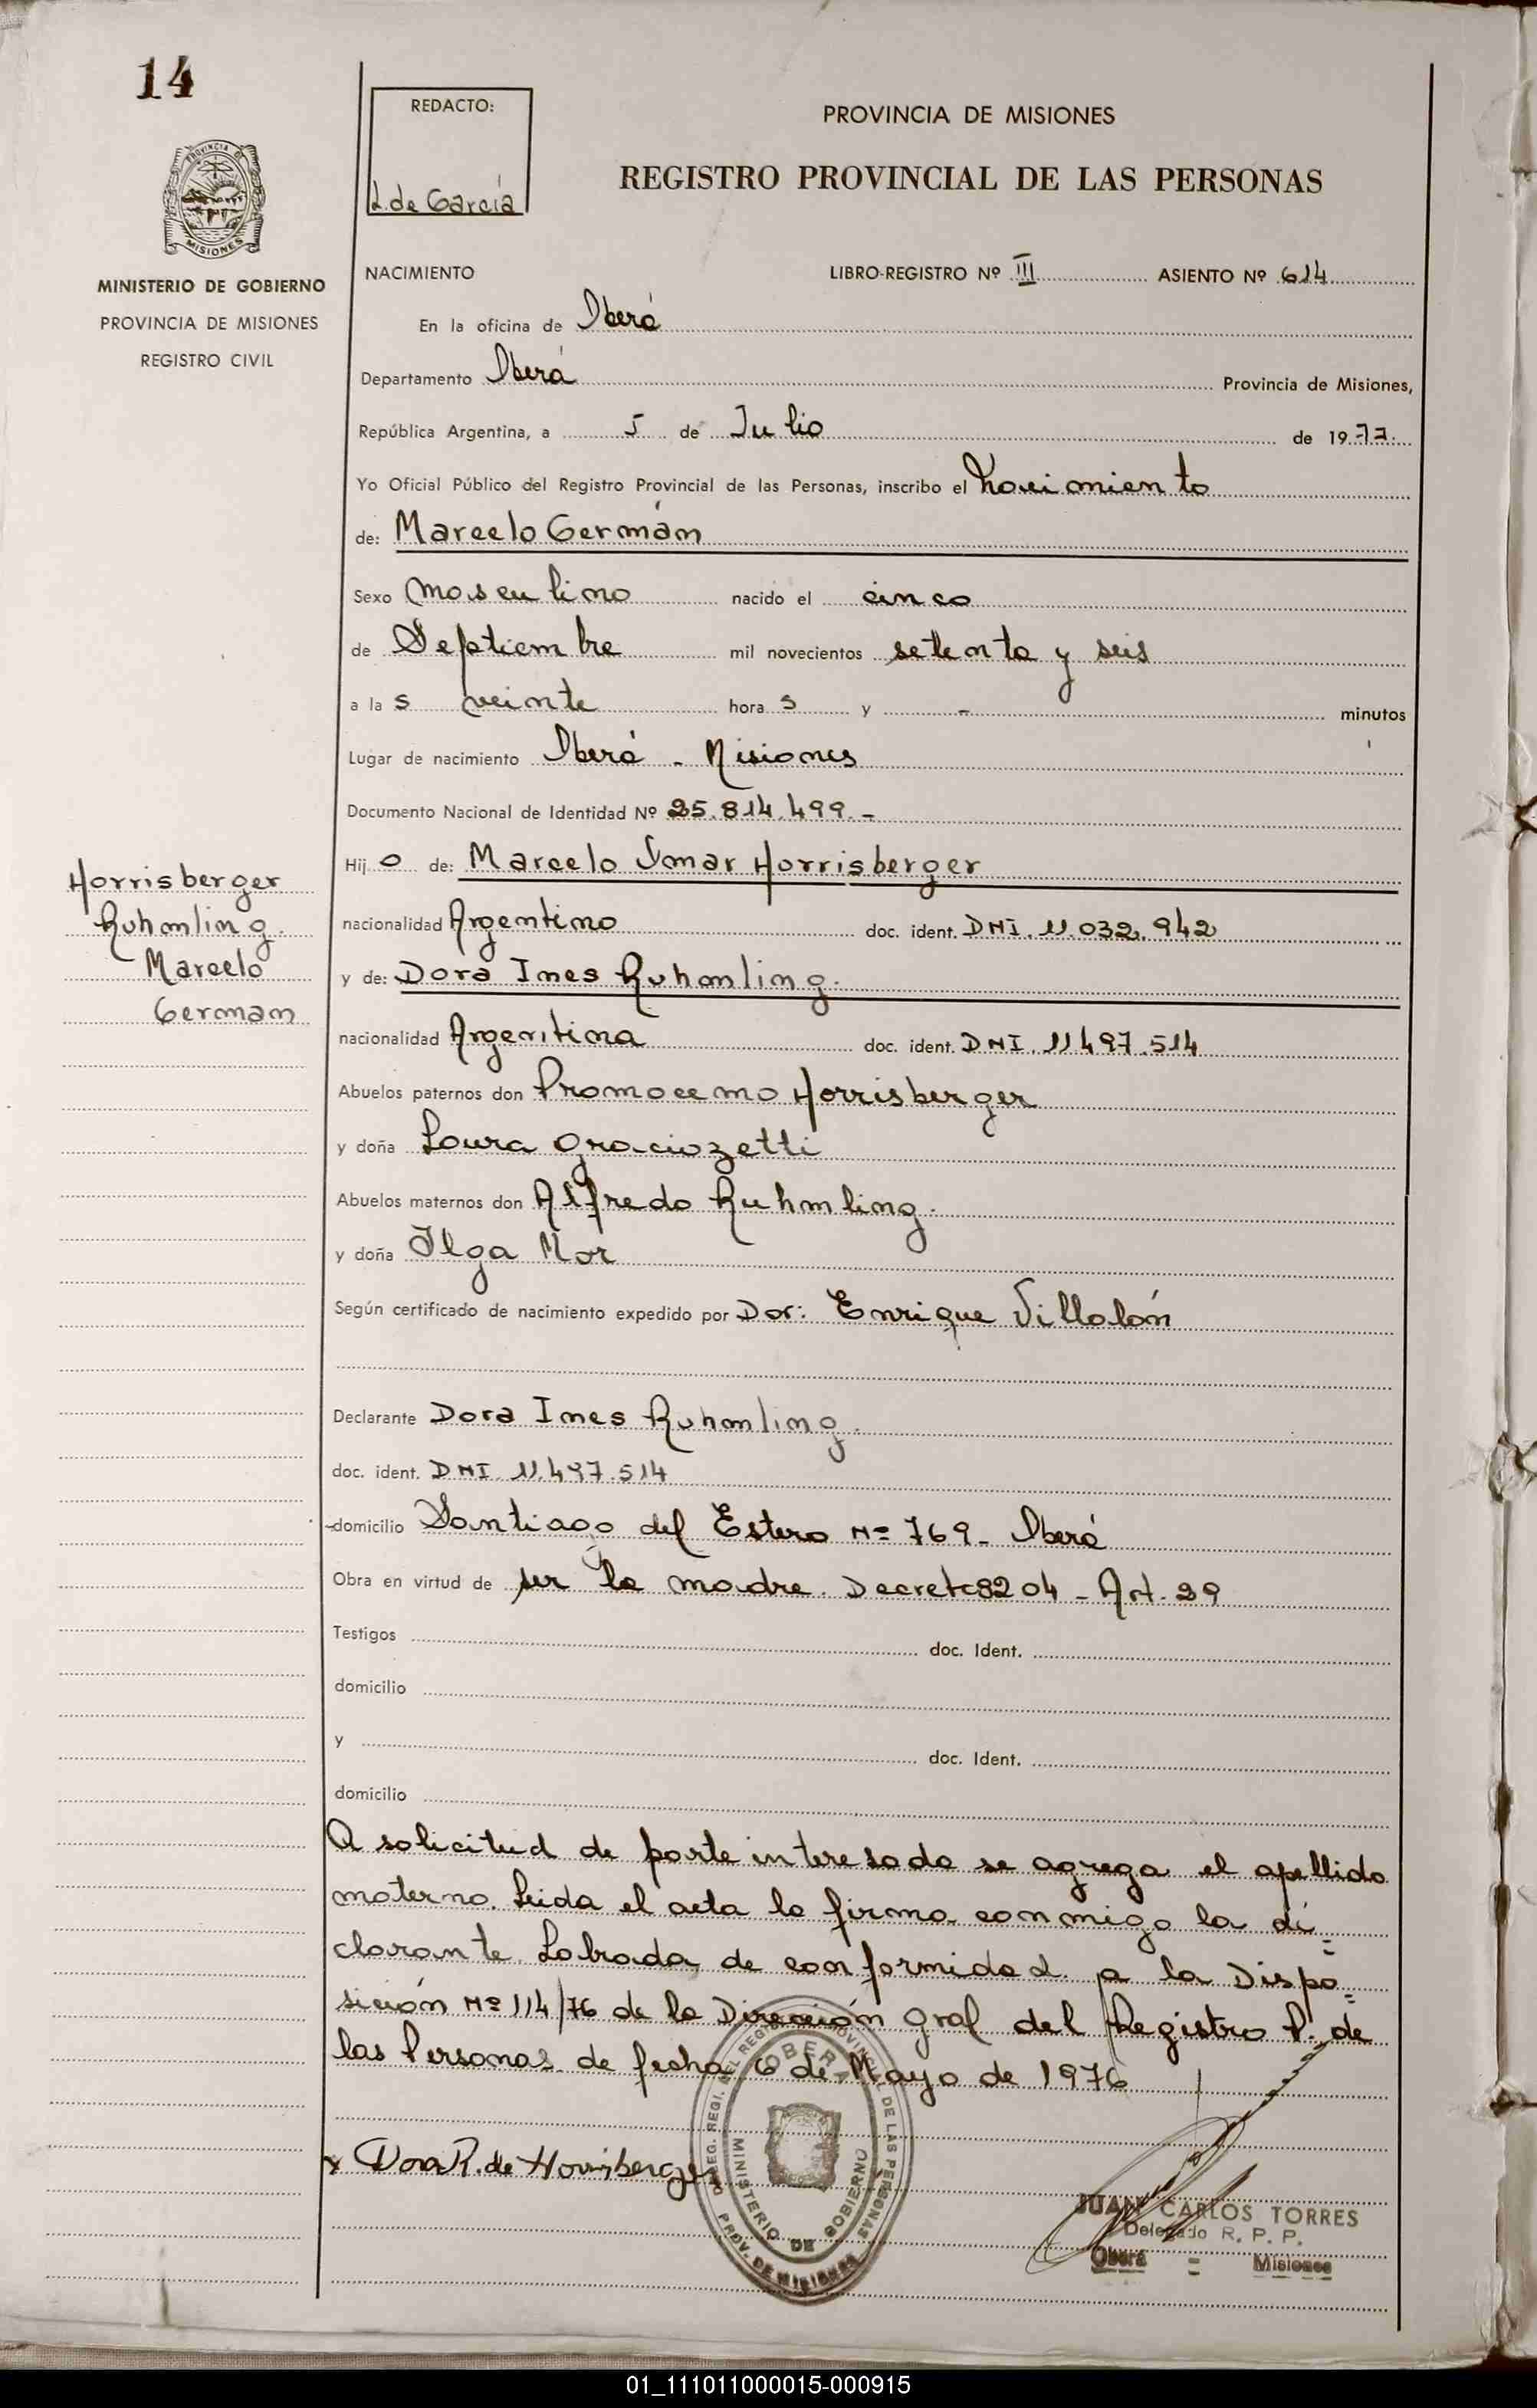 14
REDACTO:
L. de García
PROVINCIA DE MISIONES
REGISTRO PROVINCIAL DE LAS PERSONAS
PROVINCIA DE
MISIONES
MINISTERIO DE GOBIERNO
PROVINCIA DE MISIONES
REGISTRO CIVIL
NACIMIENTO LIBRO-REGISTRO Nº III ASIENTO Nº 614
En la oficina de Oberá
Departamento Oberá Provincia de Misiones,
República Argentina, a 5 de Julio de 1977.
Yo Oficial Público del Registro Provincial de las Personas, inscribo el Nacimiento
de: Marcelo Germán
Sexo masculino nacido el cinco
de Septiembre mil novecientos setenta y seis
a la s veinte hora s y - minutos
Lugar de nacimiento Oberá - Misiones
Documento Nacional de Identidad Nº 25.814.499.-
Hij o de: Marcelo Omar Horrisberger
nacionalidad Argentino doc. ident. DNI. 11.032.942
y de: Dora Ines Ruhmling.
nacionalidad Argentina doc. ident. DNI. 11497.514
Abuelos paternos don Horrisberger
y doña Laura
Abuelos maternos don Alfredo Ruhmling.
y doña Ilga Mor
Según certificado de nacimiento expedido por Dor: Enrique Villalón
Horrisberger
Ruhmling.
Marcelo
German
Declarante Dora Ines Ruhmling.
doc. ident. DNI. 11.497.514
domicilio Santiago del Estero Nº 769- Oberá
Obra en virtud de ser la madre. Decreto 8204 - Art. 29
Testigos doc. Ident.
domicilio
y doc. Ident.
domicilio
A solicitud de parte interesada se agrega el apellido
materno. Leida el acta la firma conmigo la de=
clarante. Labrada de conformidad a la Dispo=
sición Nº 114/76 de la Dirección Gral del Registro P. de
las Personas de fecha 6 de Mayo de 1976
Dora R. de Horrisberger
OBERA
MINISTERIO DE GOBIERNO
PROV. DE MISIONES
JUAN CARLOS TORRES
Delegado R. P. P.
Oberá - Misiones
01_111011000015-000915